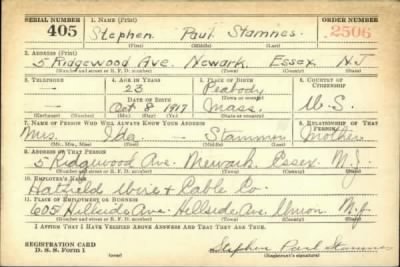 SERIAL NUMBER 1. NAME (Print) ORDER NUMBER
405 Stephen Paul Stamnes 2506
(First) (Middle) (Last)
2. ADDRESS (Print)
5 Ridgewood Ave. Newark, Essex N.J
(Number and street or R. F. D. number) (Town) (County) (State)
3. TELEPHONE 4. AGE IN YEARS 5. PLACE OF BIRTH 6. COUNTRY OF CITIZENSHIP
23 Peabody
DATE OF BIRTH (Town or county)
Oct 8 1917 Mass. U.S.
(Exchange) (Number) (Mo.) (Day) (Yr.) (State or country)
7. NAME OF PERSON WHO WILL ALWAYS KNOW YOUR ADDRESS 8. RELATIONSHIP OF THAT PERSON
Mrs. Ida Mother
(Mr., Mrs., Miss) (First) (Middle) (Last)
9. ADDRESS OF THAT PERSON
5 Ridgewood Ave. Newark Essex N.J.
(Number and street or R. F. D. number) (Town) (County) (State)
10. EMPLOYER'S NAME
Hatfield Wire & Cable Co.
11. PLACE OF EMPLOYMENT OR BUSINESS
605 Hillside Ave. Hillside Ave. Union N.J.
(Number and street or R. F. D. number) (Town) (County) (State)
I AFFIRM THAT I HAVE VERIFIED ABOVE ANSWERS AND THAT THEY ARE TRUE.
REGISTRATION CARD
D. S. S. Form 1 Stephen Paul Stamnes
(Registrant's signature)